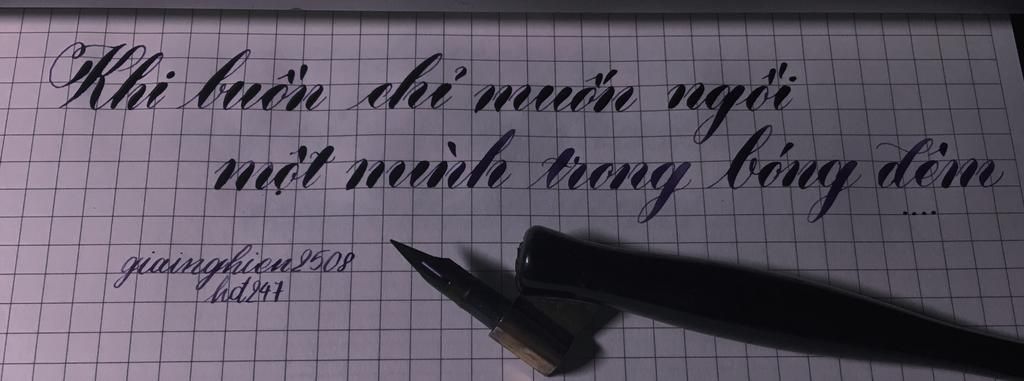 Khi buồn chỉ muốn ngồi
một mình trong bóng đêm
....
giainghien2508
hd247